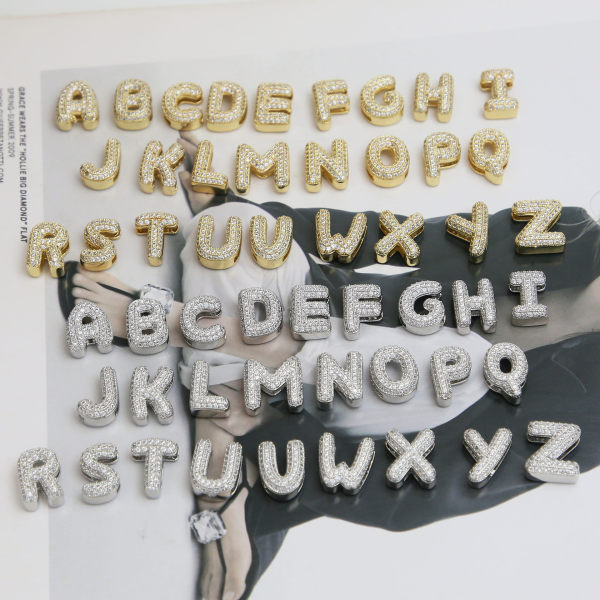 A B C D E F G H I
J K L M N O P Q
R S T U V W X Y Z
A B C D E F G H I
J K L M N O P Q
R S T U V W X Y Z
GRACE WEARS THE "HOLLIE BIG DIAMOND" FLAT
SPRING-SUMMER 2009